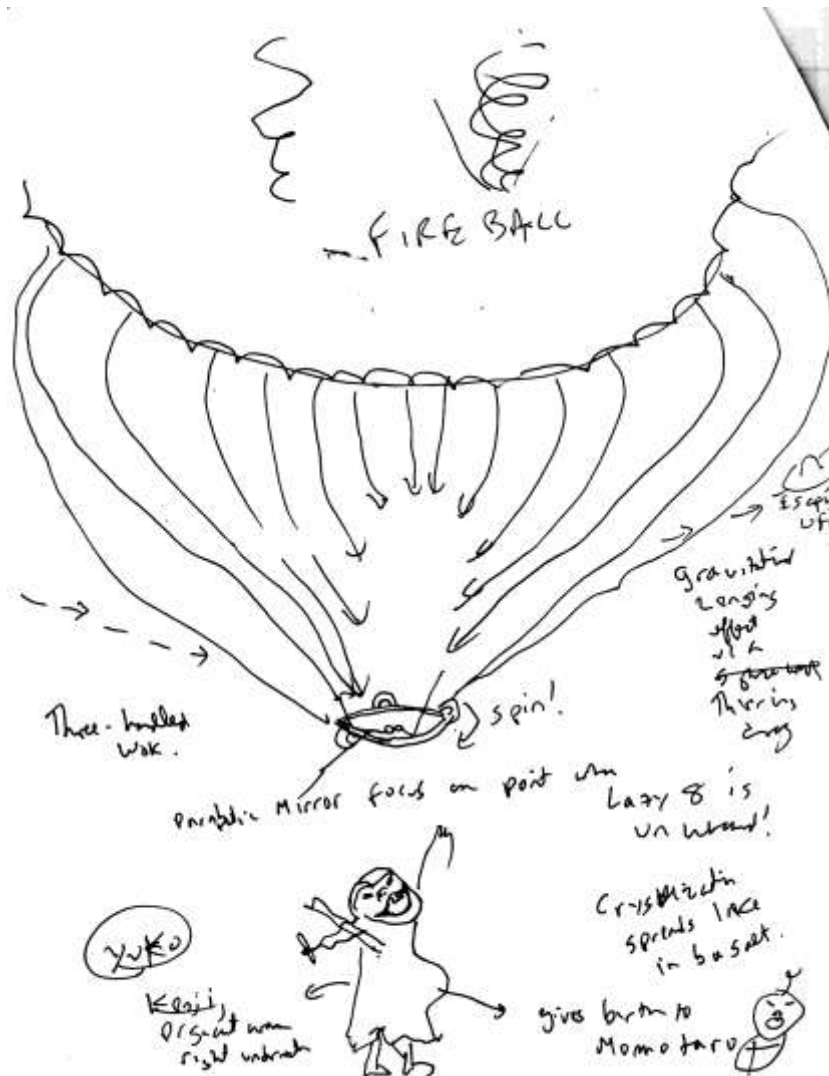 FIRE BALL
Escaping
Gravitational
Lensing
effect
via
Three-handled
wok.
spin!
Parabolic Mirror focus on point when
Lazy 8 is
unwound!
Crystallization
spreads like
in basalt.
YUKO
Kenji,
pregnant woman
right underneath
gives birth to
Momotaro